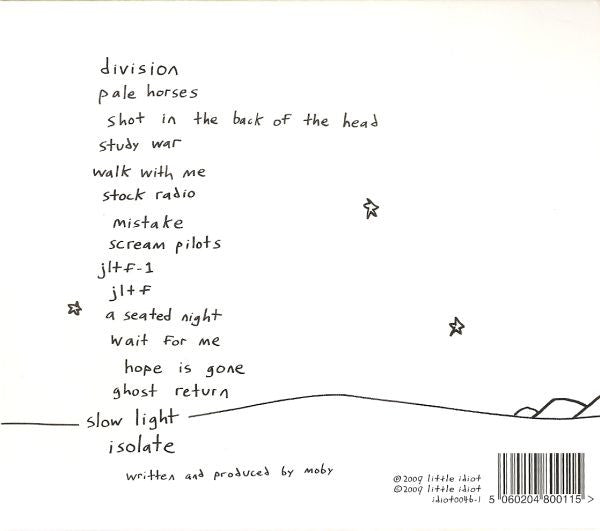 division
pale horses
shot in the back of the head
study war
walk with me
stock radio
mistake
scream pilots
jltf-1
jltf
a seated night
wait for me
hope is gone
ghost return
slow light
isolate
written and produced by moby
℗2009 little idiot
©2009 little idiot
idiot004b-1
5 060204 800115 >